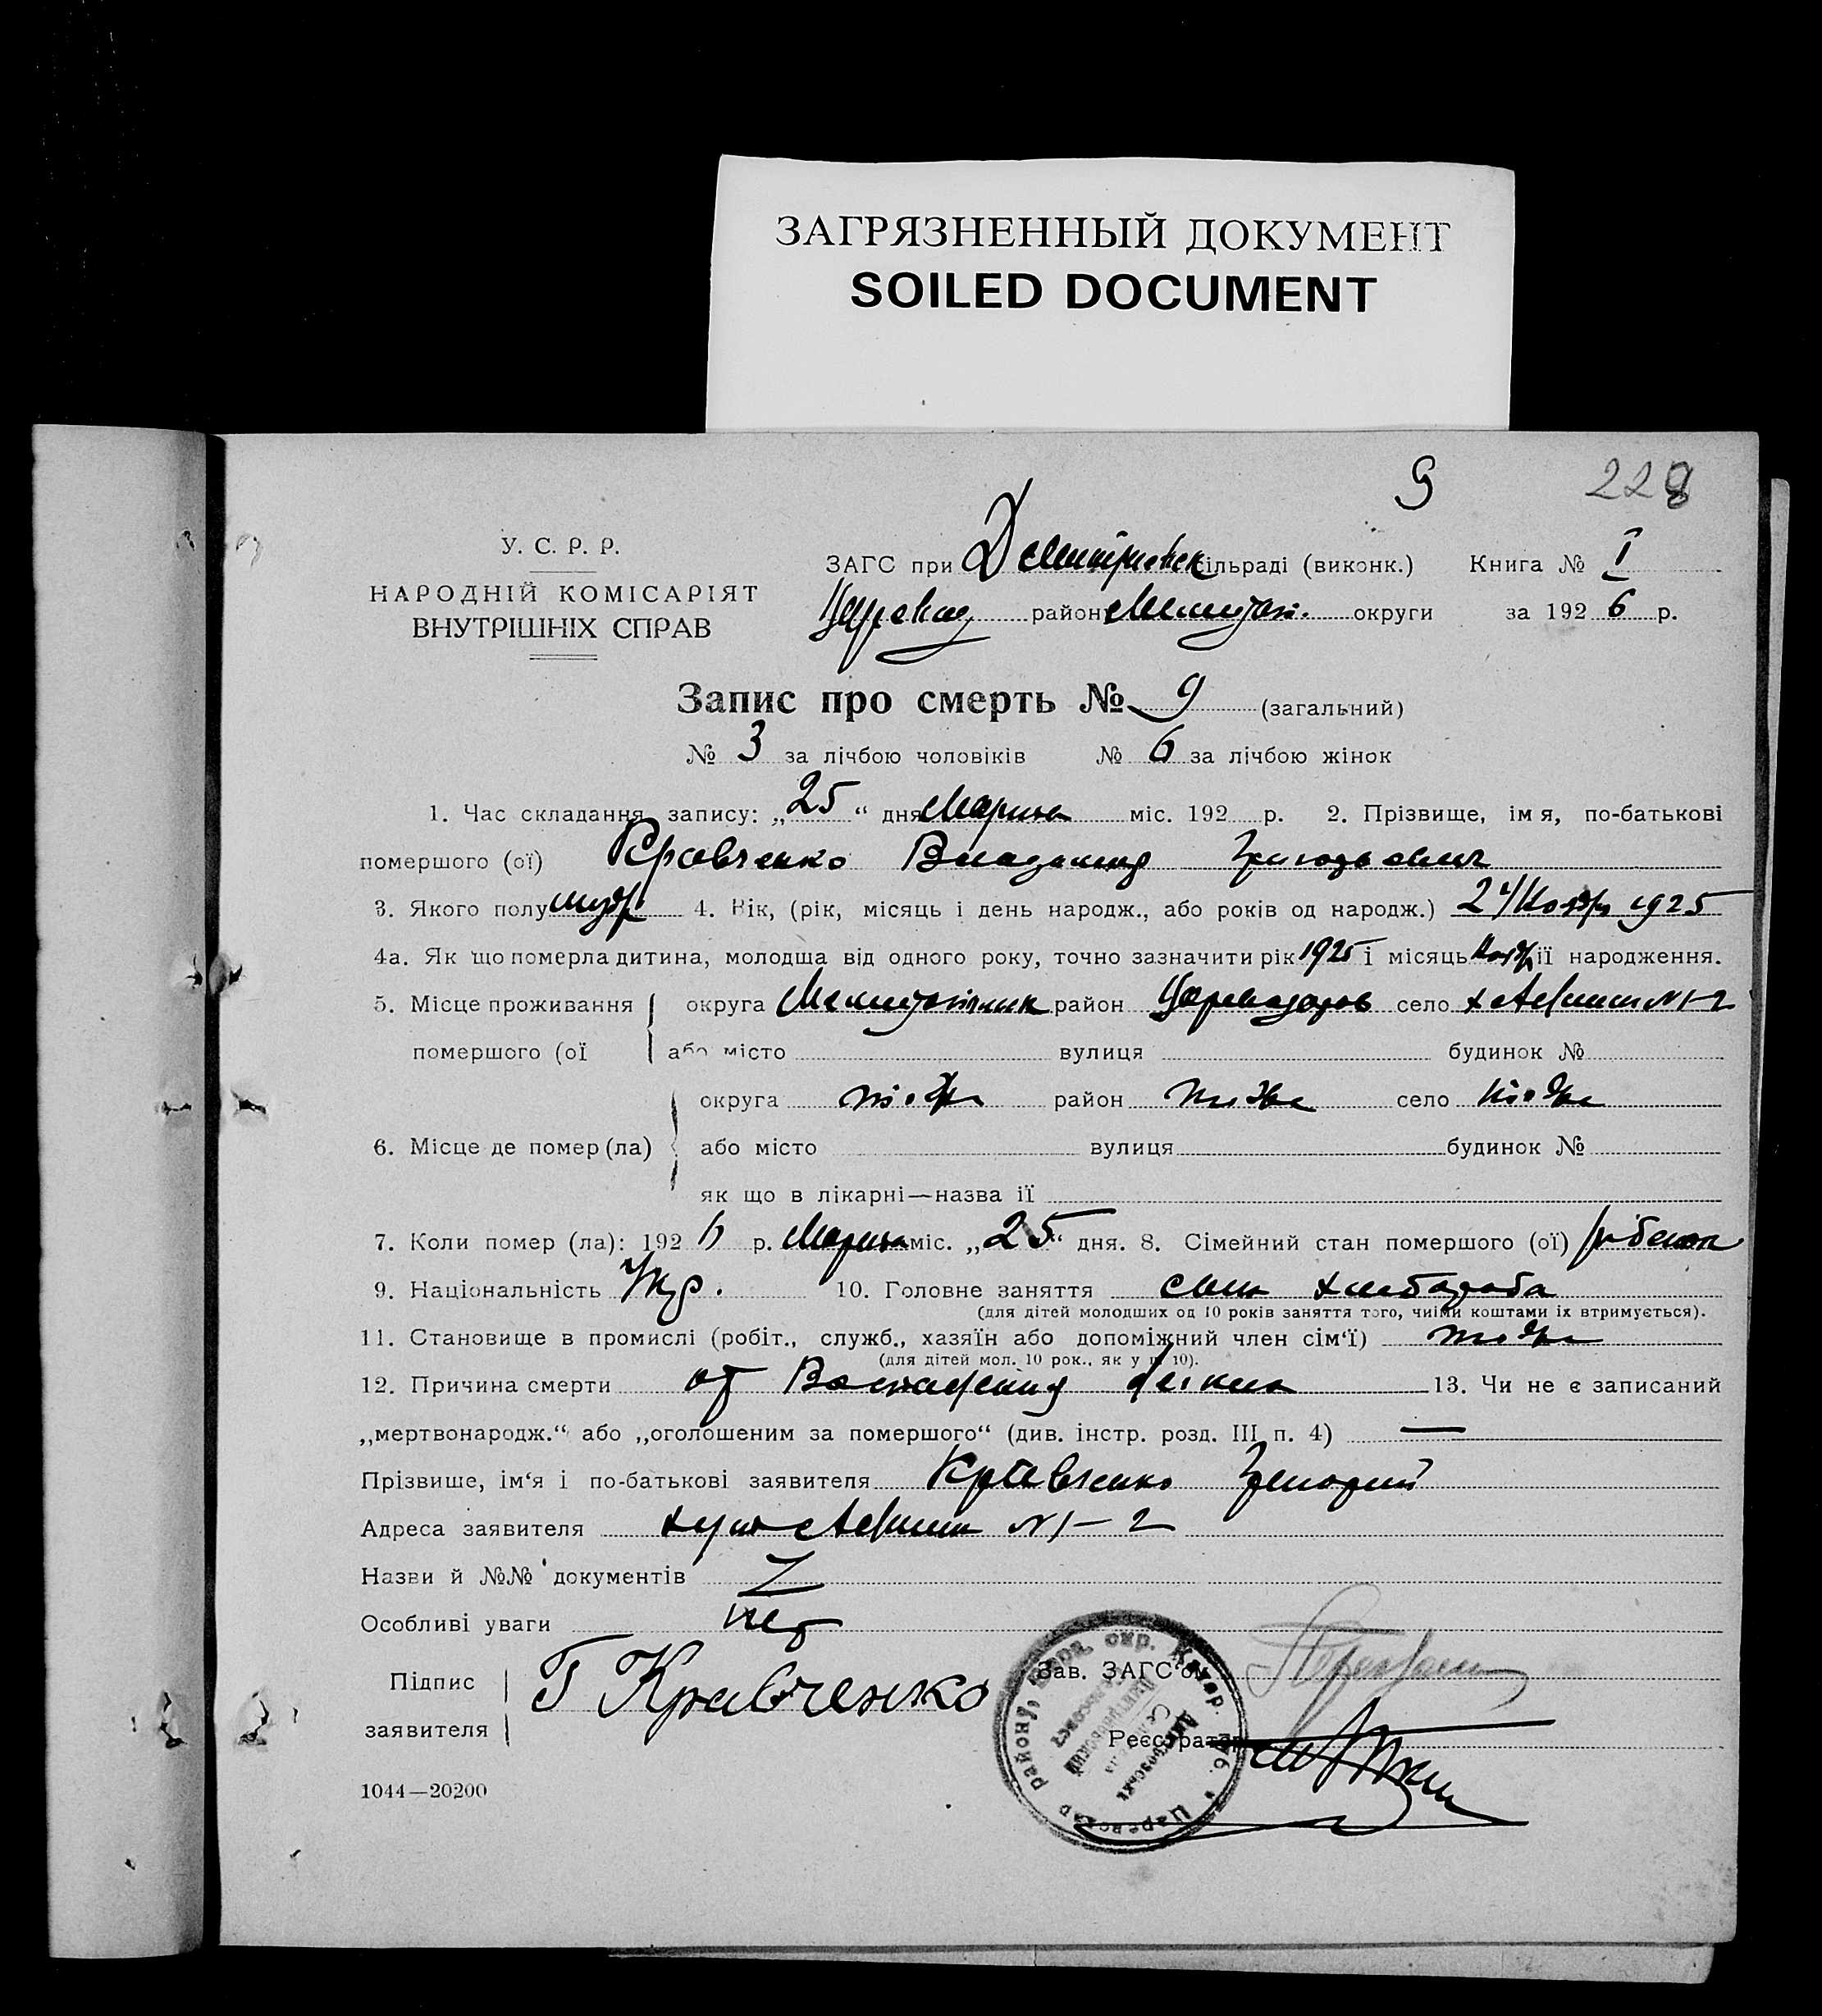 ЗАГРЯЗНЕННЫЙ ДОКУМЕНТ
SOILED DOCUMENT
9 228
У. С. Р. Р.
НАРОДНІЙ КОМІСАРІЯТ
ВНУТРІШНІХ СПРАВ
ЗАГС при Дмитриевск сільраді (виконк.) Книга № I
район Мелитоп. округи за 192 6 р.
Запис про смерть № 9 (загальний)
№ 3 за лічбою чоловіків № 6 за лічбою жінок
1. Час складання запису: „ 25 “ дня Марта міс. 192 р. 2. Прізвище, ім я, по-батькові
помершого (ої) Кравченко Владимир Григорьевич
3. Якого полу муж 4. Вік, (рік, місяць і день народж., або років од народж.) 24 Ноябр 1925
4а. Як що померла дитина, молодша від одного року, точно зазначити рік 1925 і місяць Нояб її народження.
5. Місце проживання округа район село №1-2
помершого (ої або місто вулиця будинок №
округа тоже район тоже село тоже
6. Місце де помер (ла) або місто вулиця будинок №
як що в лікарні—назва її
7. Коли помер (ла): 192 6 р. Марта міс. „ 25 “ дня. 8. Сімейний стан помершого (ої) рибенок
9. Національність Укр. 10. Головне заняття сын хлебороба
(для дітей молодших од 10 років заняття того, чиїми коштами їх втримується).
11. Становище в промислі (робіт., служб., хазяїн або допоміжний член сім‘ї) тоже
(для дітей мол. 10 рок., як у п 10).
12. Причина смерти от Воспаления легких 13. Чи не є записаний
„мертвонародж.“ або „оголошеним за помершого“ (див. інстр. розд. III п. 4) —
Прізвише, ім‘я і по-батькові заявителя Кравченко Григорий
Адреса заявителя №1-2
Назви й №№ документів
Особливі уваги нет
Підпис
заявителя
Г Кравченко
Зав. ЗАГС‘ом
Реєстратор
1044—20200